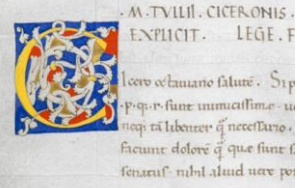 · M · TVLII · CICERONIS ·
EXPLICIT · LEGE · F
Icero octauiano salutē . Si p
· p · q · r · sunt inimicissimae · u
neqȝ tā libenter q̄ necessario .
faciunt dolorē q̄ quae sunt s
senatus · nihil aliud uere po